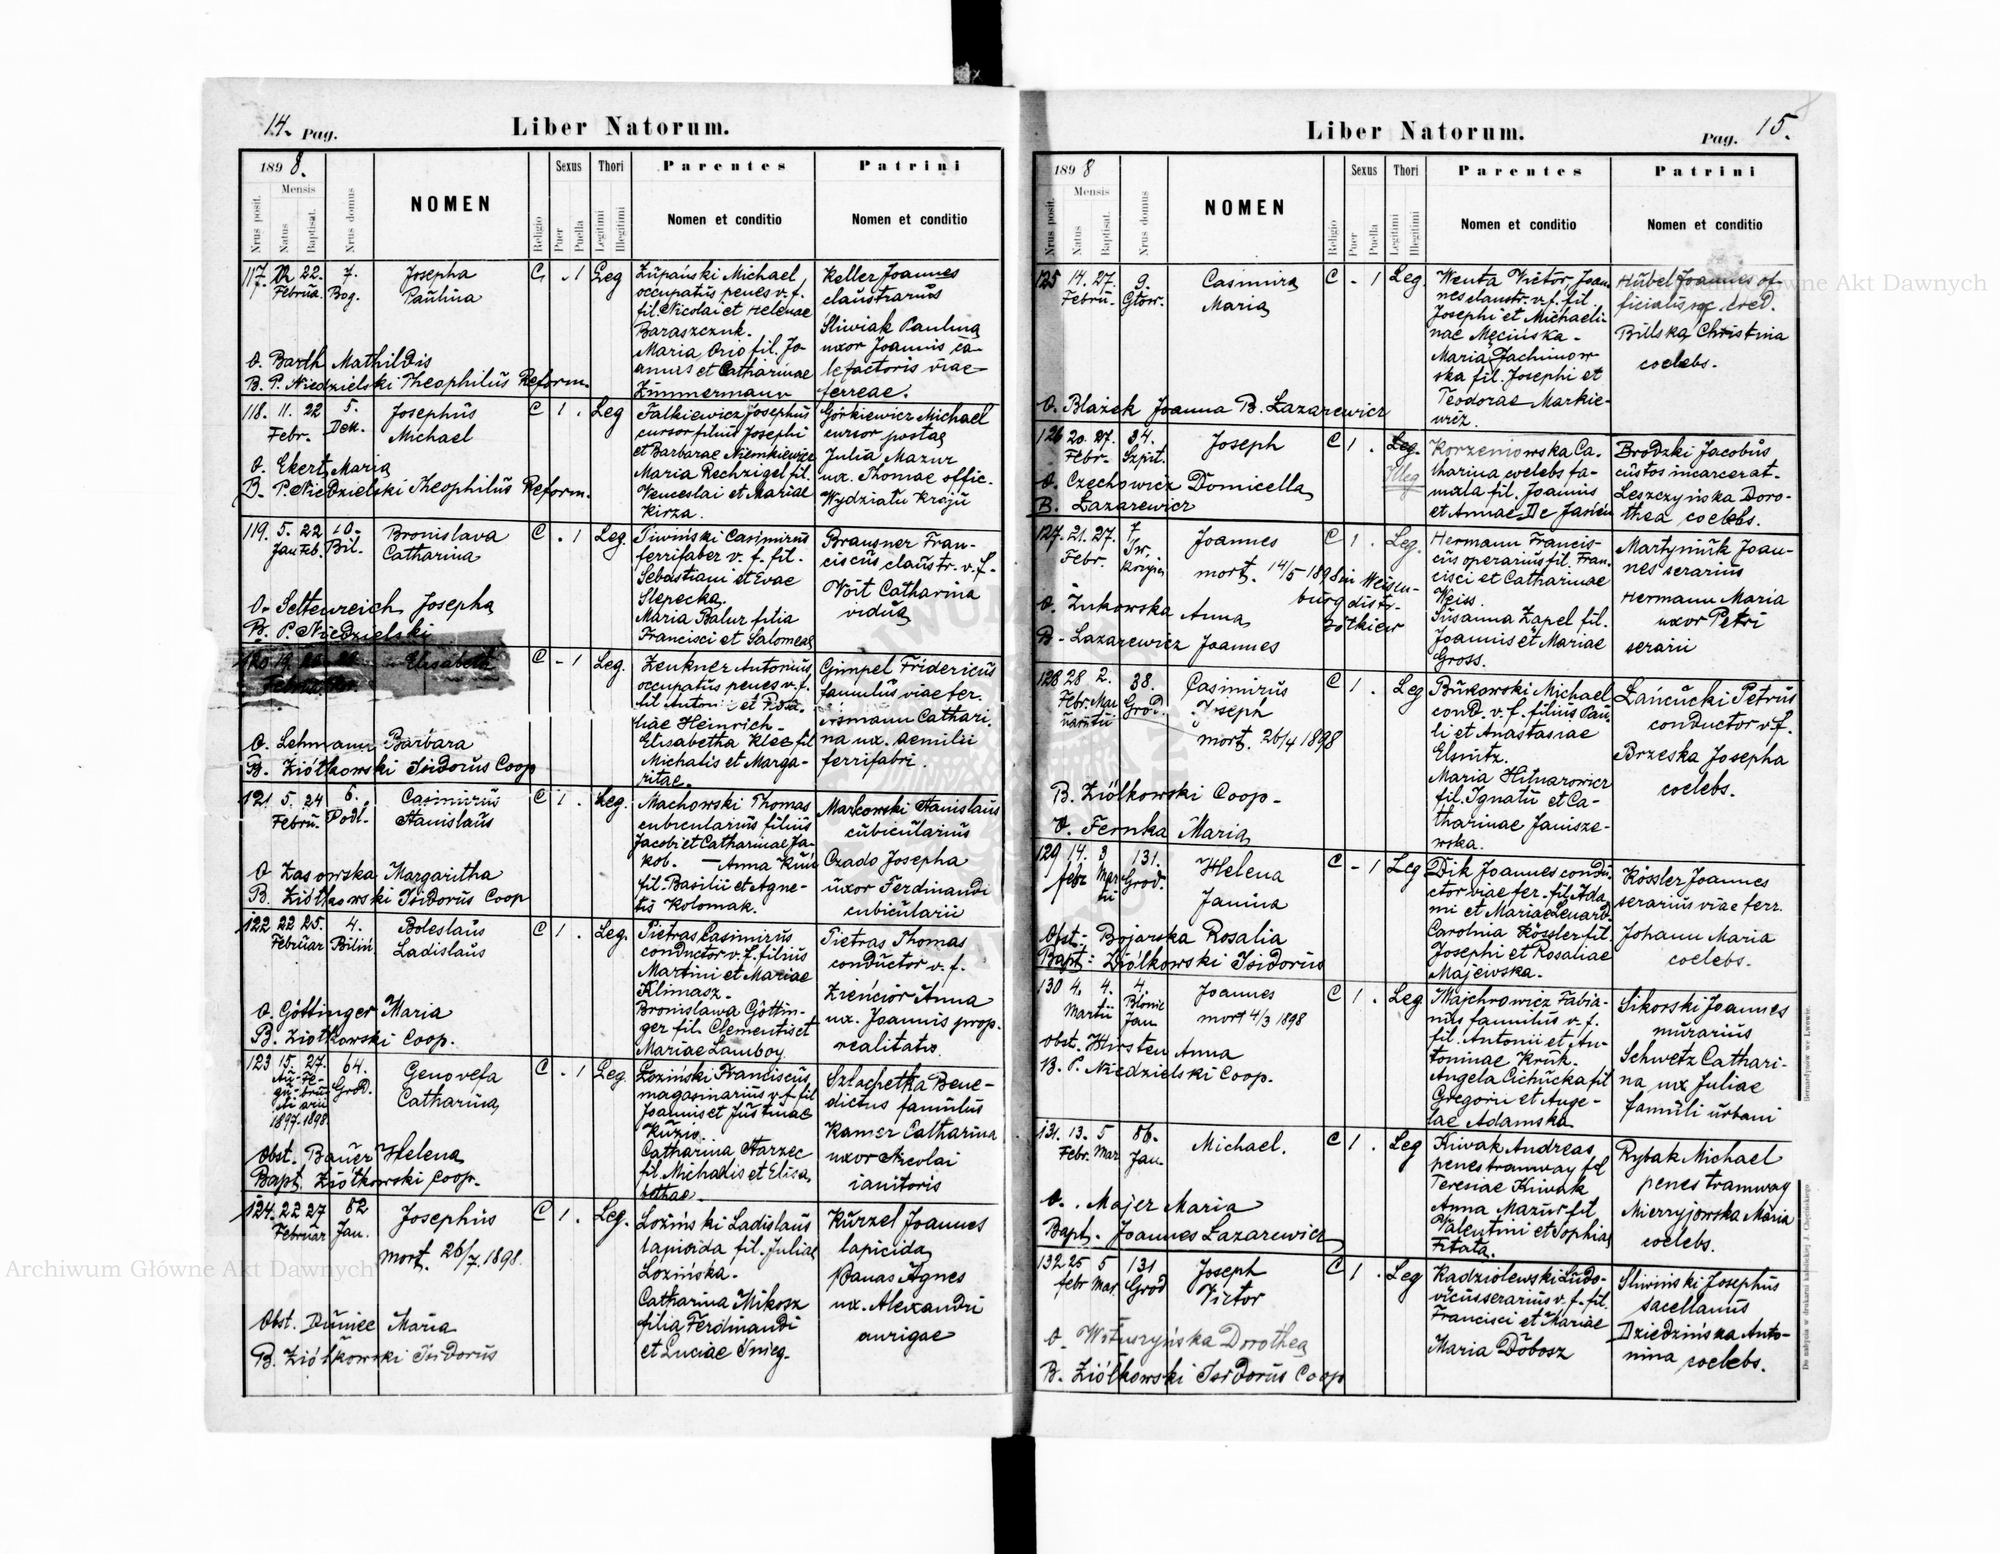 14. Pag.
Liber Natorum.
1898.
Nrus posit.
Mensis
Natus
Baptisat.
Nrus domus
NOMEN
Religio
Sexus
Puer
Puella
Thori
Legitimi
Illegitimi
Parentes
Nomen et conditio
Patrini
Nomen et conditio
117. 22.
Februa.
7.
Bog.
Josepha
Paulina
C - 1 Leg
Župański Michael,
occupatus penes v. f.
fil. Nicolai et Helenae
Baraszczuk.
Maria Orio fil. Jo-
annis et Catharinae
Zimmermann
Keller Joannes
claustrarius
Śliwiak Paulina
uxor Joannis ca-
lefactoris viae
ferreae.
O. Barth Mathildis
B. P. Niedzielski Theophilus Reform.
118. 11. 22
Febr.
5.
Dek.
Josephus
Michael
C 1 . Leg
Falkiewicz Josephus
cursor filius Josephi
et Barbarae Niemkiewicz
Maria Rechzigel fil.
Venceslai et Mariae
Kirza.
Górkiewicz Michael
cursor postae
Julia Mazur
ux. Thomae offic.
Wydziału Kraju
O. Ekert Maria
B. P. Niedzielski Theophilus Reform.
119. 5. 22
Jan Feb.
10.
Bil.
Bronislava
Catharina
C . 1 Leg.
Piwiński Casimirus
ferrifaber v. f. fil.
Sebastiani et Evae
Slepecka.
Maria Balur filia
Francisci et Salomeae
Brausner Fran-
ciscus claustr. v. f.
Voit Catharina
vidua
O. Seltenreich Josepha
B. P. Niedzielski
120 19
Elisabeth
C - 1 Leg.
Zenkner Antonius
occupatus penes v. f.
fil Antonii et Rosa-
liae Heinrich.
Elisabetha Klee fil
Michalis et Marga-
ritae.
Gimpel Fridericus
famulus viae fer.
Ersmann Cathari-
na ux. Aemilii
ferrifabri.
O. Lehmann Barbara
B. Ziółkowski Isidorus Coop
121 5. 24
Febru.
6.
Podl.
Casimirus
Stanislaus
C 1 . Leg.
Machowski Thomas
cubicularius filius
Jacobi et Catharinae Ja-
kob. — Anna Kun
fil. Basilii et Agne-
tis Kolomak.
Markowski Stanislaus
cubicularius
Czado Josepha
uxor Ferdinandi
cubicularii
O Zasowska Margaritha
B. Ziółkowski Isidorus Coop
122 22 25.
Februar
4.
Bilin
Boleslaus
Ladislaus
C 1 . Leg.
Pietras Casimirus
conductor v. f. filius
Martini et Mariae
Klimasz.
Bronislawa Göttin-
ger fil. Clementis et
Mariae Lamboy
Pietras Thomas
conductor v. f.
Zienciór Anna
ux. Joannis prop.
realitatis.
O. Göttinger Maria
B. Ziółkowski Coop.
123 15. 27.
Au- Fe-
gu- bru-
sti arii
1897. 1898.
64.
Grod.
Genovefa
Catharina
C . 1 Leg.
Łoziński Franciscus
magasinarius v. f. fil
Joannis et Justinae
Kuzio.
Catharina Harzec
fil. Michaelis et Elisa
bethae.
Szlachetka Bene-
dictus famulus
Kamer Catharina
uxor Nicolai
ianitoris
Obst. Bauer Helena
Bapt. Ziółkowski Coop.
124. 22 27
Februar
82
Jan.
Josephus
mort. 26/7. 1898.
C 1 . Leg.
Łoziński Ladislaus
lapicida fil. Juliae
Łozińska.
Catharina Mikosz
filia Ferdinandi
et Luciae Śnieg.
Kurzel Joannes
lapicida
Panas Agnes
ux. Alexandri
aurigae
Obst. Duniec Maria
B. Ziółkowski Isidorus
Liber Natorum.
Pag. 15.
1898
Nrus posit.
Mensis
Natus
Baptisat.
Nrus domus
NOMEN
Religio
Sexus
Puer
Puella
Thori
Legitimi
Illegitimi
Parentes
Nomen et conditio
Patrini
Nomen et conditio
125 14. 27.
Febru.
9.
Głow.
Casimira
Maria
C - 1 Leg.
Wenta Victor, Joan
nes claustr. v. f. fil.
Josephi et Michaeli-
nae Męcińska.
Maria Jachimow
ska fil. Josephi et
Teodorae Markie-
wicz.
Hübel Joannes of-
ficialis
Billska Christina
coelebs.
O. Blażek Joanna B. Łazarewicz
126 20. 27.
Febr.
34.
Szpit.
Joseph
C 1 . Leg.
Illeg
Korzeniowska Ca-
tharina coelebs fa-
mula fil. Joannis
et Annae De Jasień
Brodzki Jacobus
custos incarcerat.
Leszczyńska Doro-
thea coelebs.
O. Czechowicz Domicella
B. Łazarewicz
127. 21. 27.
Febr.
7
Sw.
Joannes
mort. 14/5 1898 in Weisen-
burg distr.
Żółkiew
C 1 . Leg.
Hermann Francis-
cus operarius fil. Fran-
cisci et Catharinae
Weiss.
Susanna Zapel fil.
Joannis et Mariae
Gross.
Martyniuk Joan-
nes serarius
Hermann Maria
uxor Petri
serarii
O. Żukowska Anna
B. Łazarewicz Joannes
128 28 2.
Febr. Mar
tii
38.
Grod.
Casimirus
Joseph
mort. 26/4 1898
C 1 . Leg
Bukowski Michael
cond. v. f. filius Pau-
li et Anastasiae
Elsnitz.
Maria Hilnarowicz
fil. Ignatii et Ca-
tharinae Janisze-
wska.
Łańcucki Petrus
conductor v. f.
Brzeska Josepha
coelebs.
B. Ziółkowski Coop.
O. Fernka Maria
129 14. 3
febr Mar
tii
131.
Grod.
Helena
Janina
C - 1 Leg
Dik Joannes condu-
ctor viae fer. fil. Ada
mi et Mariae Lenard
Carolina Kössler fil
Josephi et Rosaliae
Majewska.
Kössler Joannes
serarius viae ferr.
Johann Maria
coelebs.
Obst. Bojarska Rosalia
Bapt: Ziółkowski Isidorus
130 4. 4.
Martii
4.
Błonie
Jan
Joannes
mort 4/3 1898
C 1 . Leg
Majchrowicz Fabia-
nus famulus v. f.
fil. Antonii et An-
toninae Kruk.
Angela Cichucka fil
Gregorii et Ange-
lae Adamska
Sikorski Joannes
murarius
Schwetz Cathari-
na ux Juliae
famuli urbani
obst. Hirsten Anna
B. P. Niedzielski Coop.
131. 13. 5
Febr. Mar
86.
Jan.
Michael.
C 1 . Leg
Kiwak Andreas
penes tramway fil
Teresiae Kiwak
Anna Mazur fil
Valentini et Sophiae
Fitata.
Rybak Michael
penes tramway
Mierryjowska Maria
coelebs.
O. Majer Maria
Bapt. Joannes Łazarewicz
132 25 5
febr Mar.
131
Grod
Joseph
Victor
C 1 . Leg
Radziolewski Ludo-
vicus serarius v. f. fil.
Francisci et Mariae
Maria Dobosz
Śliwiński Josephus
sacellanus
Dziedzińska Anto-
nina coelebs.
O. Dorothea
B. Ziółkowski Isidorus Coop
Do nabycia w drukarni katolickiej J. Chęcińskiego
Bernardynów we Lwowie.
Archiwum Główne Akt Dawnych
Archiwum Główne Akt Dawnych